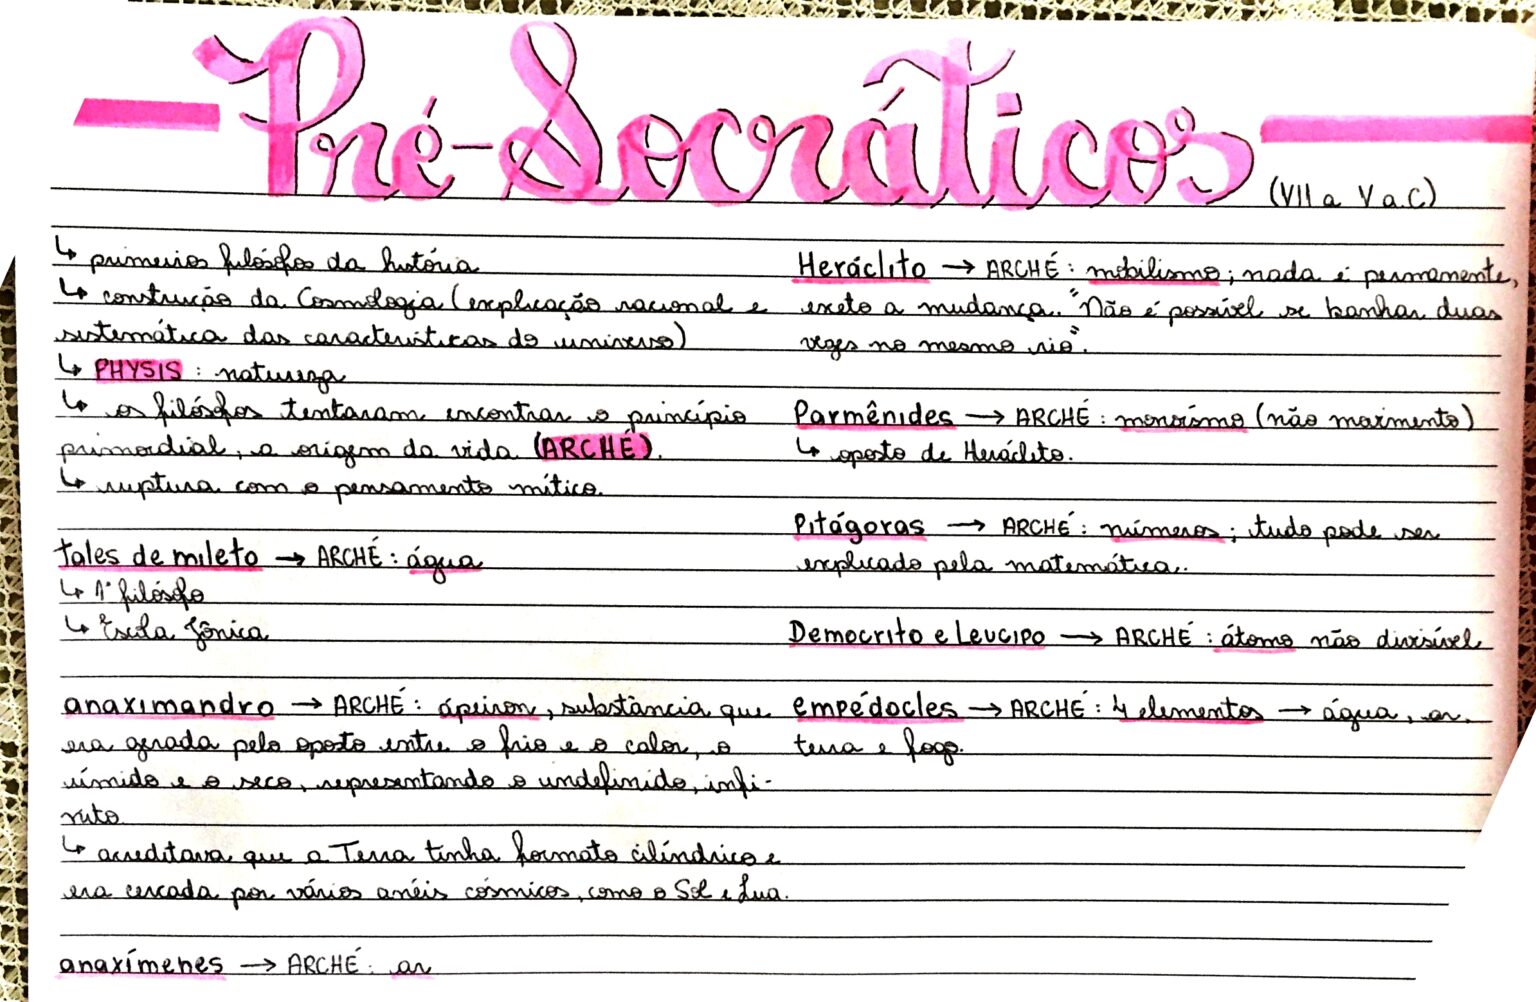 Pré-Socráticos
(VII a V a.C)
↳ primeiros filósofos da história
↳ construção da Cosmologia (explicação racional e
sistemática das características do universo)
↳ PHYSIS : natureza
↳ os filósofos tentaram encontrar o princípio
primordial, a origem da vida (ARCHÉ).
↳ ruptura com o pensamento mítico.
tales de mileto → ARCHÉ : água
↳ 1º filósofo
↳ Escola Jônica
anaximandro → ARCHÉ : ápeiron, substância que
era gerada pelo oposto entre o frio e o calor, o
úmido e o seco, representando o indefinido, infi-
nito
↳ acreditava que a Terra tinha formato cilíndrico e
era cercada por vários anéis cósmicos, como o Sol e Lua.
anaxímenes → ARCHÉ : ar
Heráclito → ARCHÉ : mobilismo; nada é permanente,
exeto a mudança. "Não é possível se banhar duas
vezes no mesmo rio".
Parmênides → ARCHÉ : monoísmo (não movimento)
↳ oposto de Heráclito.
Pitágoras → ARCHÉ : números; tudo pode ser
explicado pela matemática.
Democrito e Leucipo → ARCHÉ : átomo não divisível
empédocles → ARCHÉ : 4 elementos → água, ar,
terra e fogo.